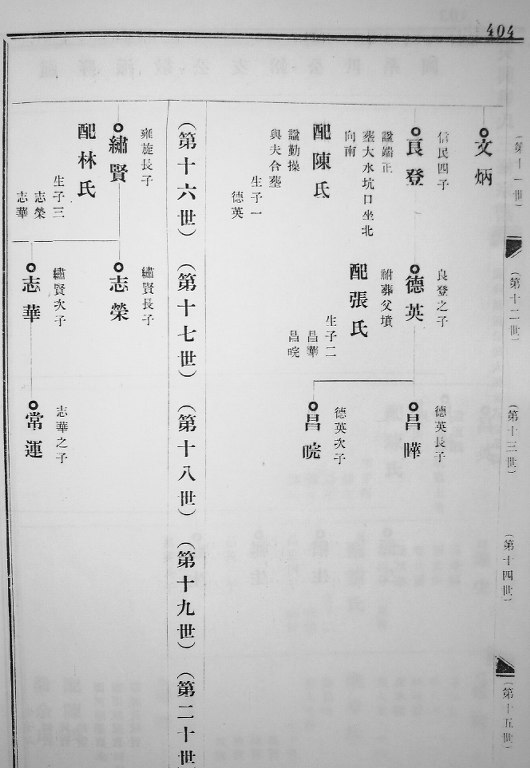 404
(第十一世)
(第十二世)
(第十三世)
(第十四世)
(第十五世)
文炳
信民四子
良登
諡端正
塟大水坑口坐北
向南
配陳氏
諡勤操
與夫合塟
生子一
德英
良登之子
德英
祔葬父墳
配張氏
生子二
昌華
昌晥
德英長子
昌曄
德英次子
昌晥
(第十六世)
(第十七世)
(第十八世)
(第十九世)
(第二十世
雍旋長子
繡賢
配林氏
生子三
志榮
志華
繡賢長子
志榮
繡賢次子
志華
志華之子
常運